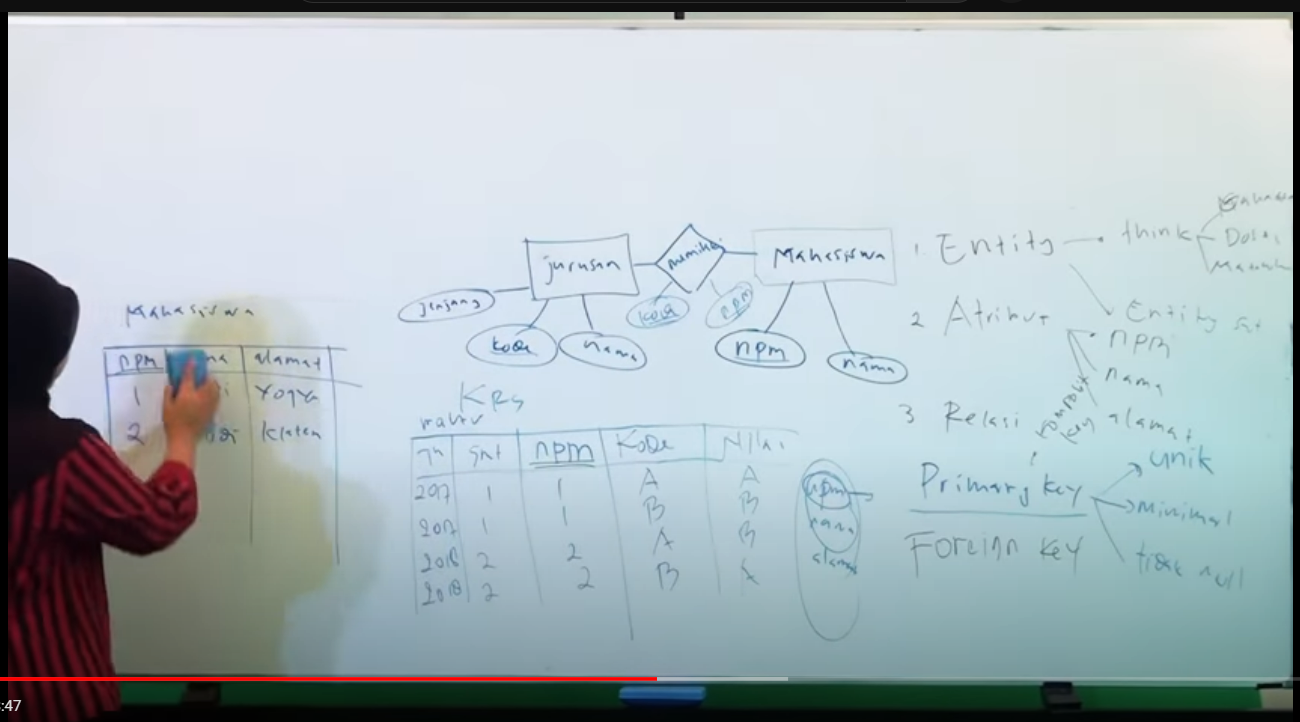 Mahasiswa
npm alamat
1 Yogya
2 Klaten
jurusan memiliki Mahasiswa
jenjang
kode nama
kode npm
npm nama
KRS
Th Smt npm Kode Nilai
2017 1 1 A A
2017 1 1 B B
2018 2 2 A B
2018 2 2 B A
npm
nama
alamat
1. Entity think
Dosen
Entity set
2 Atribut
npm
nama
alamat
3 Relasi
komposit key
Primary key
unik
minimal
tidak null
Foreign key
:47